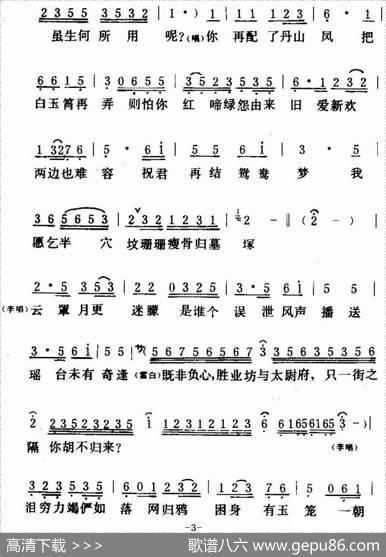 2 3 5 5 3 5 3 2 | 1 · ) | 1 1 1 2 3 | 6 · 1 |
虽生何 所 用 呢?(唱)你 再配 了丹山 凤 把
6 6 1 5 | 3 0 6 5 5 | 3 5 3 2 1 2 | 6 · 1 2 3 2 |
白玉箫再 弄 则怕你 红 啼绿怨由来 旧 爱新欢
1 3 2 7 6 | 5 · 6 i | 5 5 6 i | 3 · 5 |
两边也难 容 祝君 再结 鸳鸯 梦 我
3 6 5 6 5 3 | 2 3 2 1 2 3 1 | 2 - || ( 2 - ) |
愿乞半 穴 坟珊珊瘦骨归墓 塚
2 · 5 3 5 3 | 1 · 3 5 | 3 · 5 6 i | 5 5 |
(李唱)云 罩月更 迷朦 是谁个 误 泄风声 播 送
3 · 5 6 i | 5 5 | 5 6 7 5 6 7 5 6 7 | 6 3 · 5 6 3 5 6 5 3 5 |
瑶 台未有 奇逢 (霍白)既非负心,胜业坊与太尉府,只一街之
2 2 3 5 2 3 2 3 5 | i 2 3 1 2 3 1 2 3 1 2 | 6 6 1 6 5 6 1 6 5 6 1 | 5 - ) |
隔 你胡不归来? (李唱)
3 2 3 5 5 | 6 0 1 2 3 2 | 1 · 2 0 1 | 6 1 5 1 2 |
泪穷力竭俨如 落 网归鸦 困身 有玉 笼 一朝
-3-
高清下载 >>> 歌谱八六 www.gepu86.com